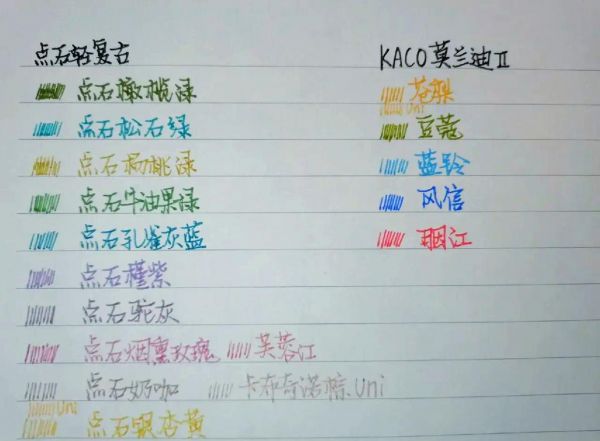 点石轻复古
点石橄榄渌
点石松石绿
点石杨桃渌
点石牛油果渌
点石孔雀灰蓝
点石槿紫
点石驼灰
点石烟熏玫瑰 芙蓉江
点石奶咖 卡布奇诺棕.Uni
Uni
点石银杏黄
KACO莫兰迪Ⅱ
苍梨
Uni
豆蔻
蓝铃
风信
胭江